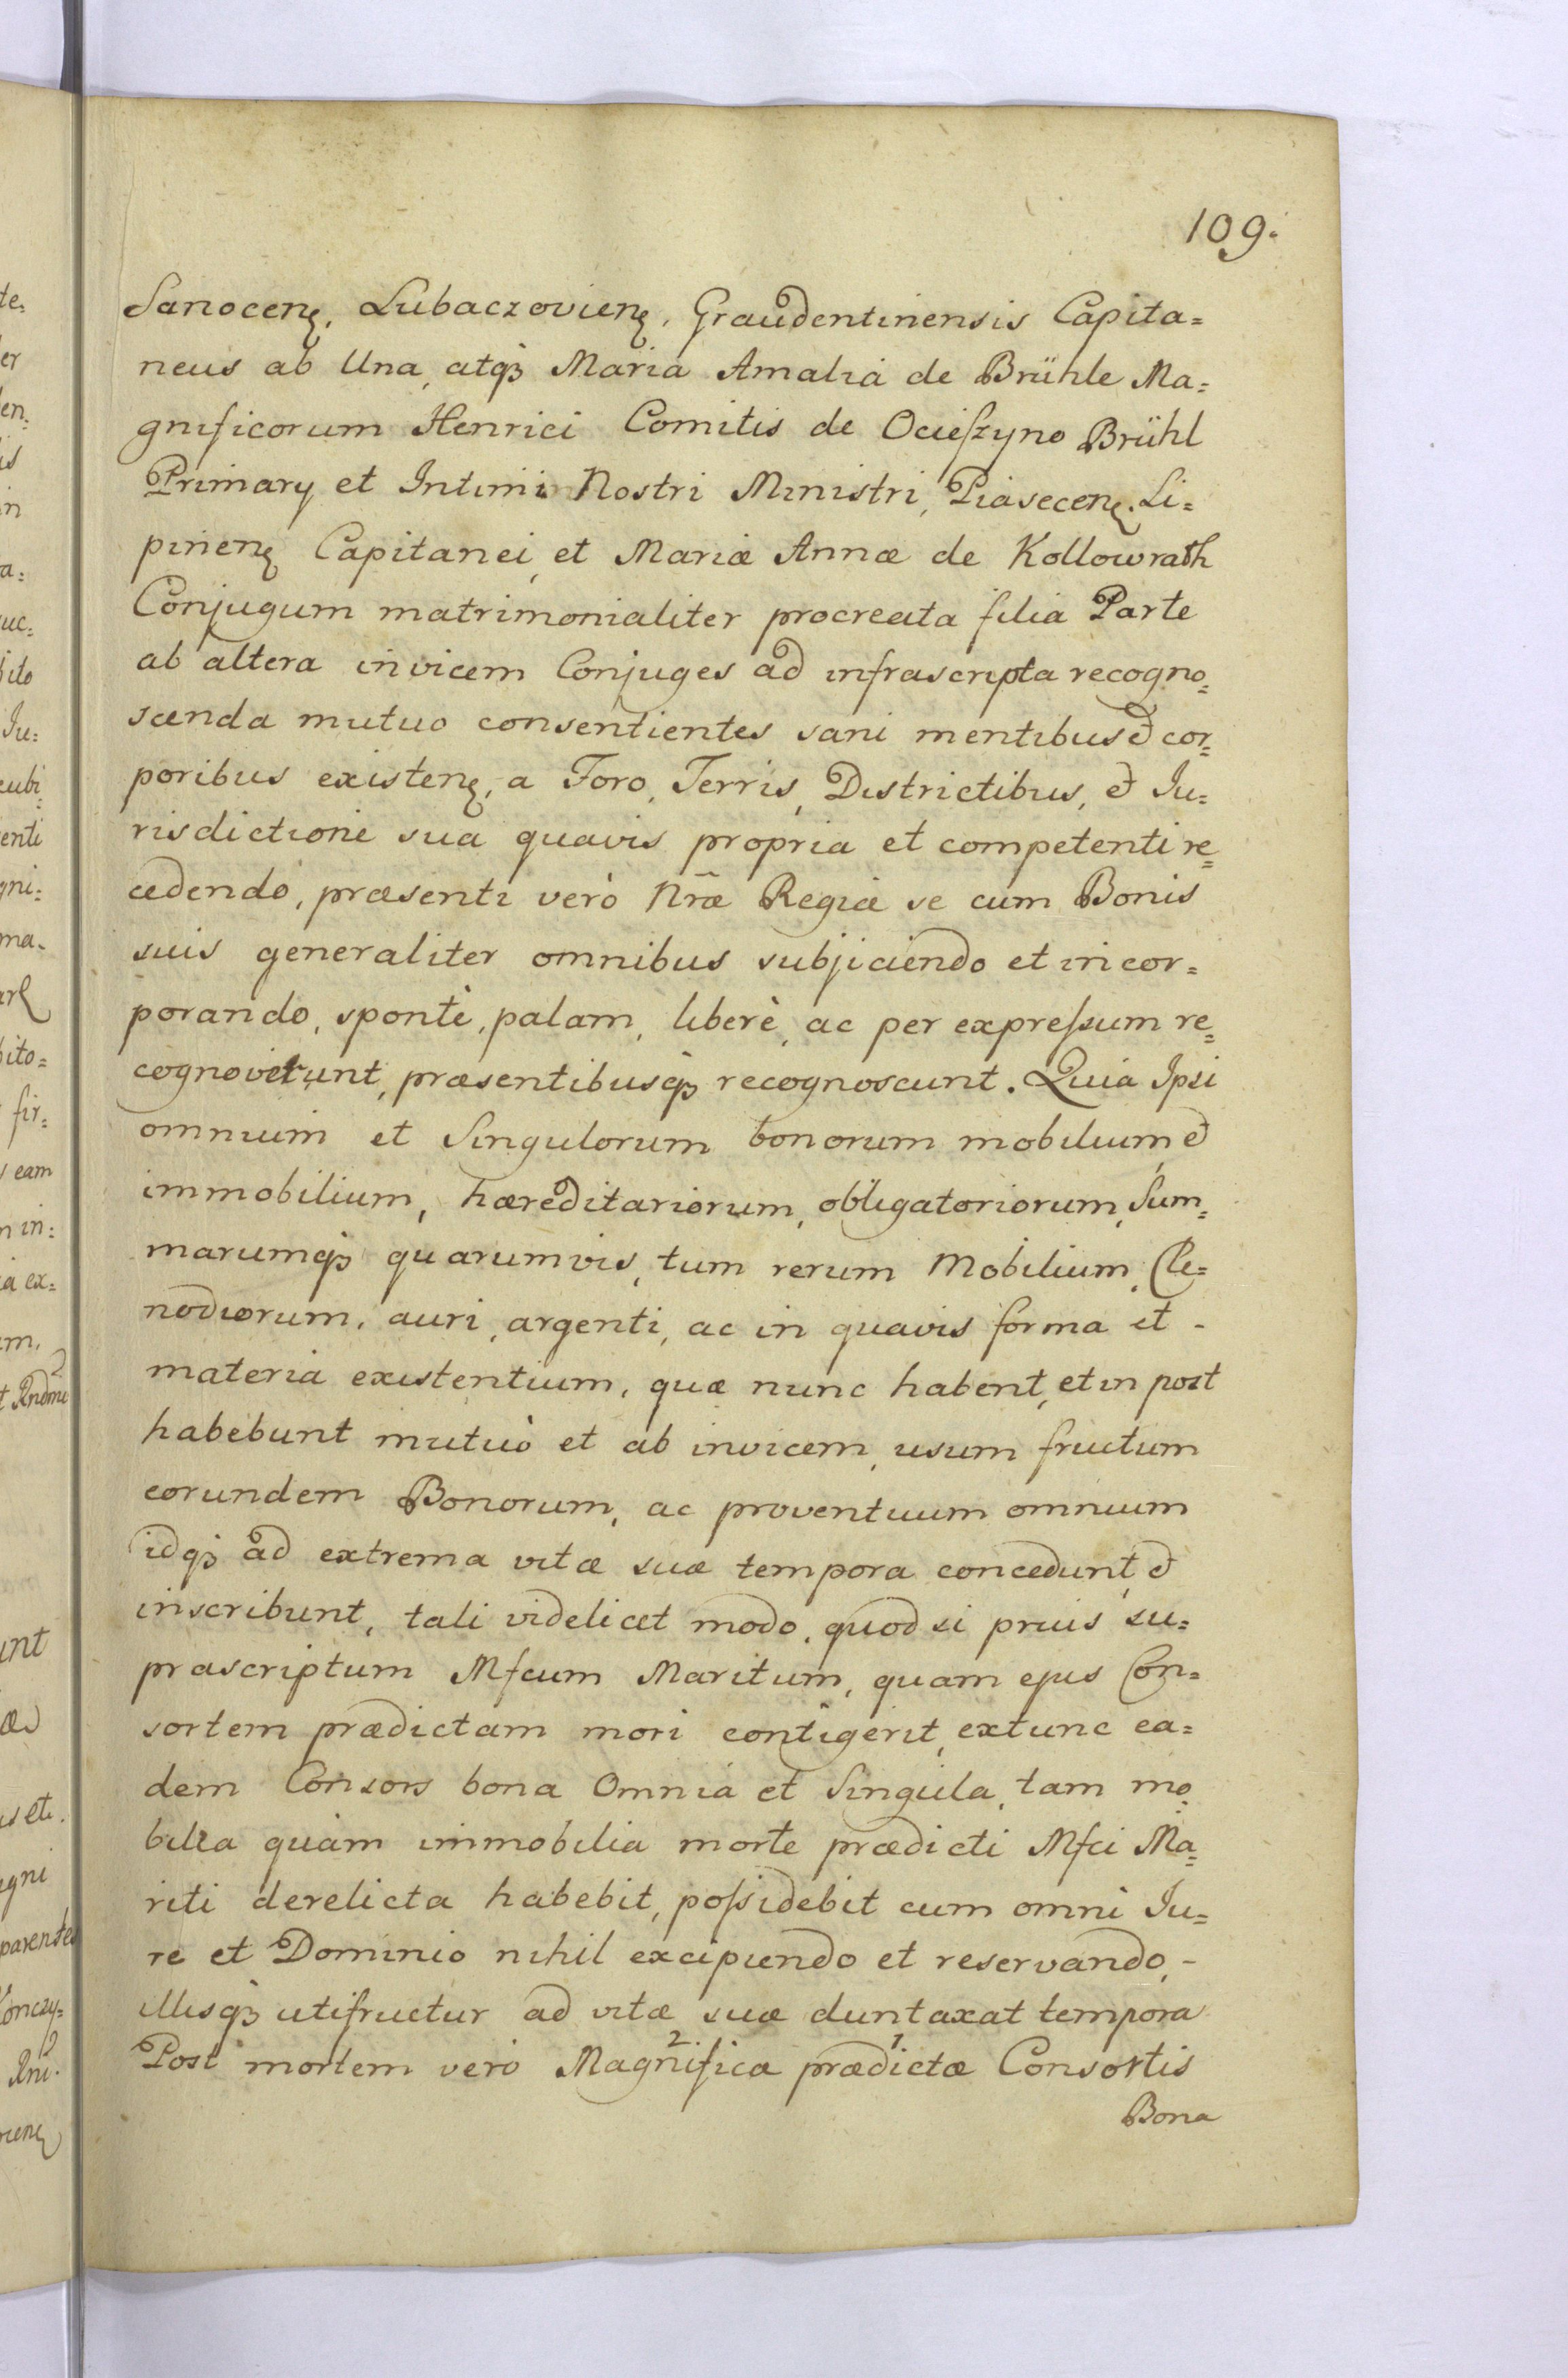 109.
Sanocen̨, Lubaczovien̨, Graudentinensis Capita=
neus ab Una, atqꝫ Maria Amalia de Brühle Ma=
gnificorum Henrici Comitis de Ocieſzyno Brühl
Primary et Intimi Nostri Ministri, Piasecen̨. Li=
pinen̨ Capitanei, et Mariæ Annæ de Kollowrath
Conjugum matrimonialiter procreata filia Parte
ab altera invicem Conjuges ad infrascripta recogno=
scenda mutuo consentientes sani mentibus & cor=
poribus existen̨, a Foro, Terris, Districtibus, & Iu=
risdictione sua quavis propria et competenti re=
cedendo, præsenti verò Nræ Regiæ se cum Bonis
suis generaliter omnibus subjiciendo et incor=
porando, spontè, palam, liberè, ac per expreſsum re=
cognoverunt, præsentibusqꝫ recognoscunt. Quia Ipsi
omnium et Singulorum bonorum mobilium &
immobilium, hæreditariorum, obligatoriorum, Sum=
marumqꝫ quarumvis, tum rerum Mobilium, Cle=
nodiorum, auri, argenti, ac in quavis forma et -
materia existentium, quæ nunc habent, et in post
habebunt mutuò et ab invicem, usum fructum
eorundem Bonorum, ac proventuum omnium
idqꝫ ad extrema vitæ suæ tempora concedunt, &
inscribunt, tali videlicet modo, quod si prius su=
prascriptum Mfcum Maritum, quam ejus Con=
sortem prædictam mori contigerit, extunc ea=
dem Consors bona Omnia et Singula, tam mo=
bilia quàm immobilia morte prædicti Mfci Ma=
riti derelicta habebit, poſsidebit cum omni Iu=
re et Dominio nihil excipiendo et reservando, -
illisqꝫ utifruetur ad vitæ suæ duntaxat tempora
Post mortem verò Magnificæ 2 prædictæ 1 Consortis
Bona